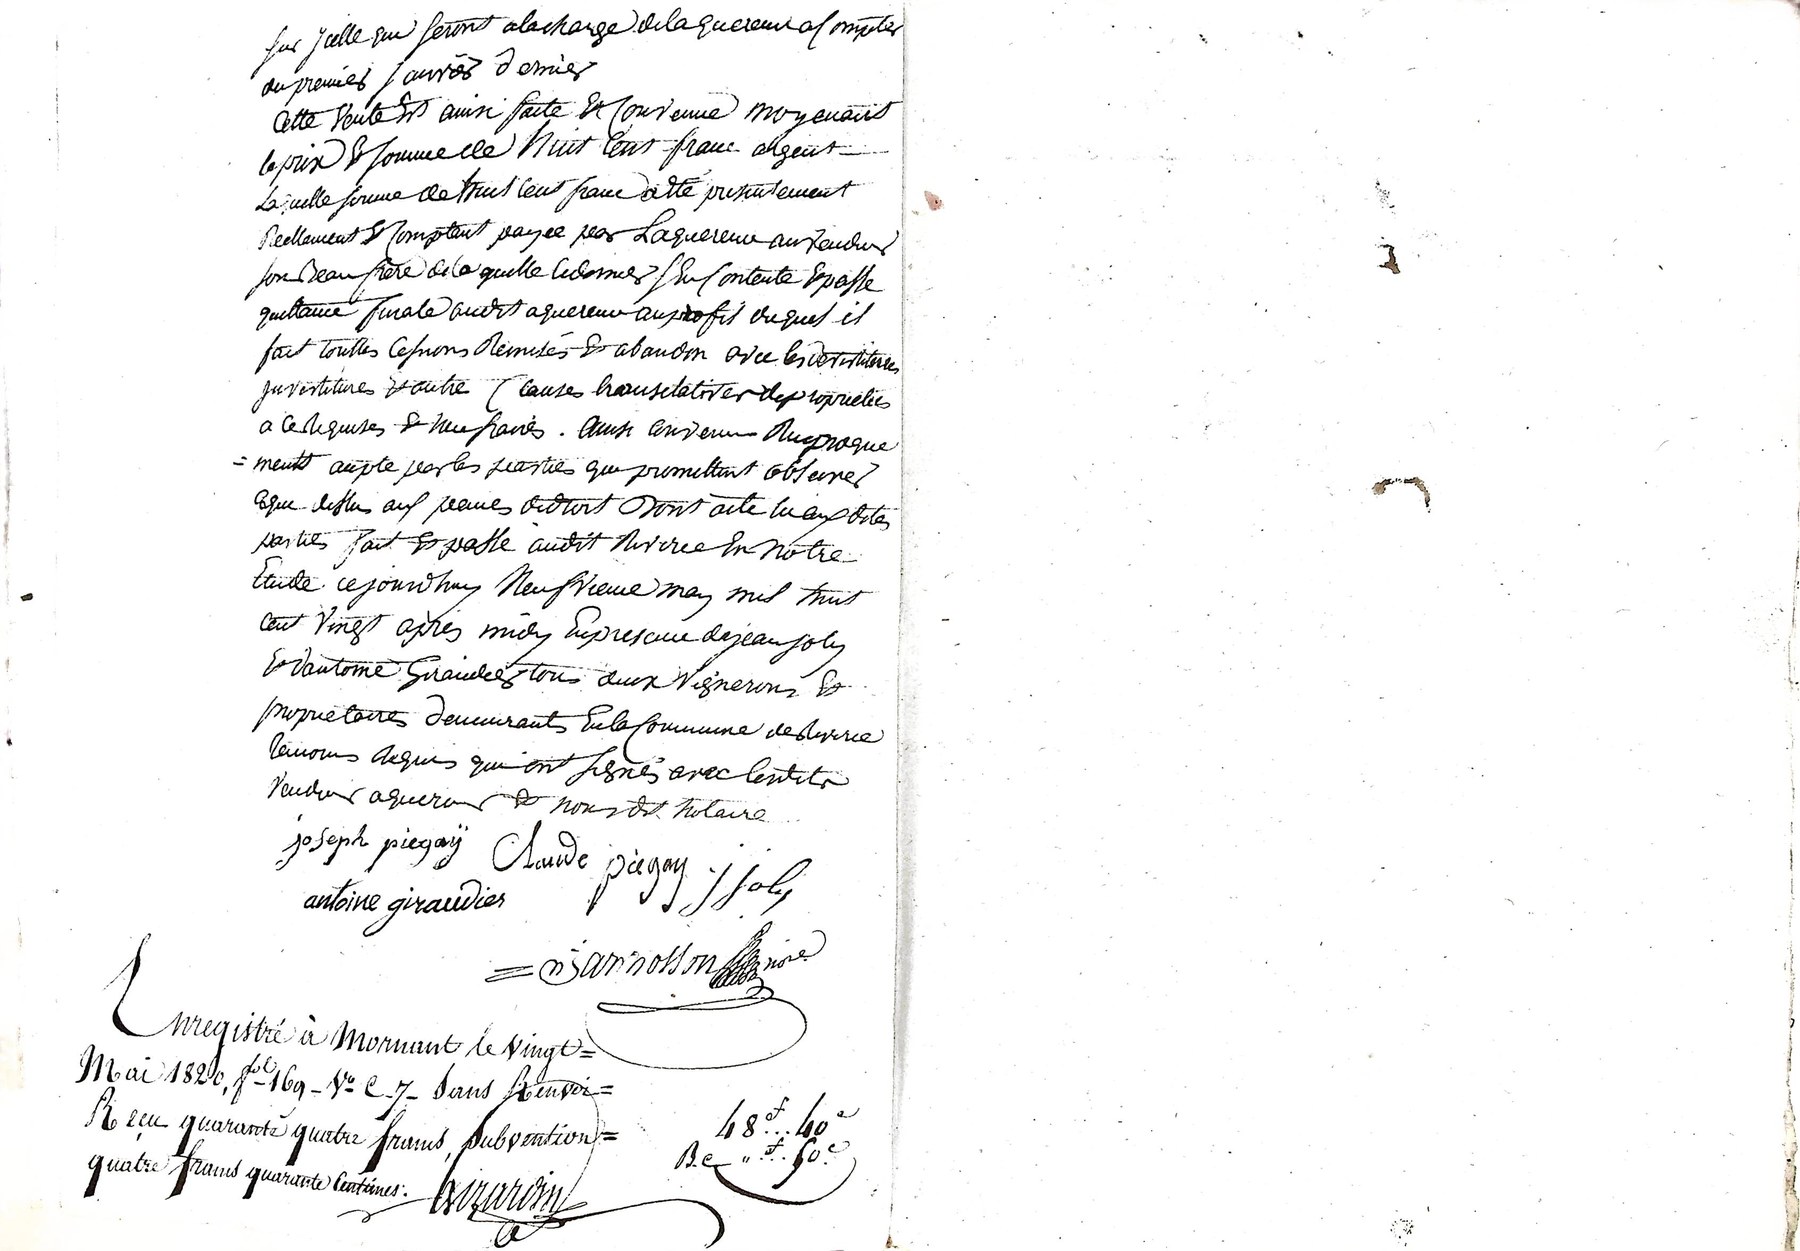 sur jcelle qui seront a lacharge delaquereur a Compter
du premier janvier dernier
Cette Vente Est ainsi faite Et Convenue moyenant
le prix Et somme de huit Cent franc argent
Laquelle somme de huit Cent franc a èté présentement
Réellement Et Comptant payée par Laquereur au vendeur
son Beau frère de la quelle le dernier sen Contente Et passe
quittance finale audit aquereur au profit duquel il
fait touttes Cessions Remises Et abandon avec les devestitures
jnvestitures Et autre Causes translatives de propriétés
a ce Requises Et necessaires . ainsi Convenu Reciproque
= ment accepté par les parties qui promettent observer
ceque dessus aux peines de droit Dont acte lu aux dites
parties fait Et passé audit Riverie En notre
Etude cejourdhuy Neufvieme may mil huit
Cent Vingt après midy En presence de jean joly
Et dantoine Giraudier tous deux Vignerons Et
propriétaires demeurants En la Commune de Riverie
temoins Requis qui ont signés avec lesdits
Vendeur aquereur Et nous dit Notaire
joseph piegaÿ Claude piegay j joly
antoine giraudier
= Jarnosson nore
Enregistré à Mornant le Vingt =
Mai 1820, fol 169 Vo C 7 Sans Renvoi =
Reçu quarante quatre francs, Subvention =
quatre francs quarante Centimes. Girardin
48f.. 40c
B.e " f. 50c